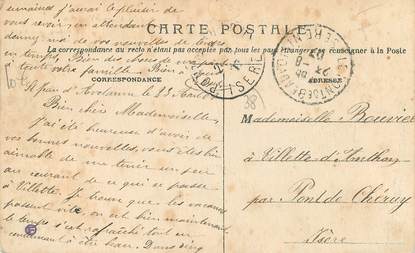 semaines j'aurai le plaisir de
vous revoir, en attendant
donnez moi de vos nouvelles de temps
en temps. Bien des choses de ma part
à toute votre famille. Bien à vous
CARTE POSTALE
La correspondance au recto n'étant pas acceptée par tous les pays étrangers, se renseigner à la Poste
CORRESPONDANCE
ADRESSE
ISERE
St Jean d'Avelanne le 23 Août
Bien chère Mademoiselle,
J'ai été heureuse d'avoir de
vos bonnes nouvelles, vous êtes bien
aimable de me tenir un peu
au courant de ce qui se passe
à Villette. Je trouve que les vacances
passent vite, on est bien maintenant
le temps s'est rafraîchi tout en
continuant à être beau. Dans cinq
38
Mademoiselle Bouvier
à Villette d'Anthon
par Pont de Chéruy
Isère